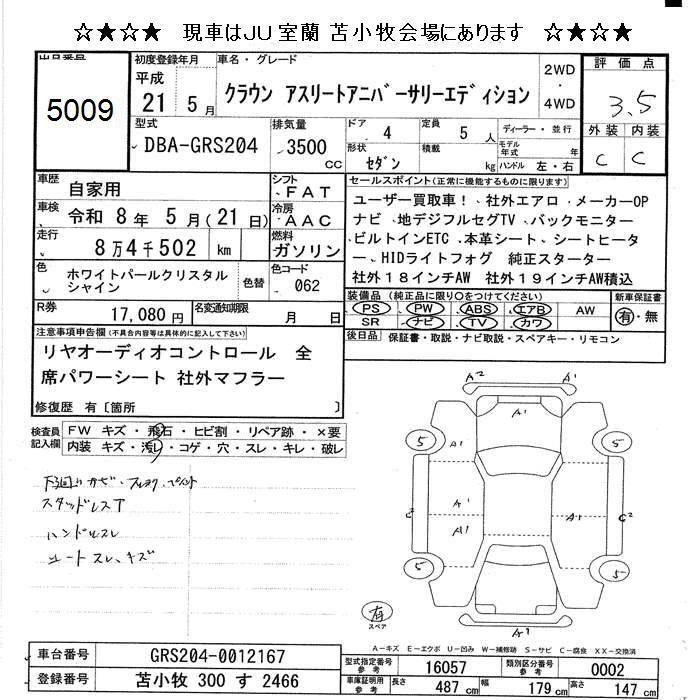 ☆★☆★ 現車はJU室蘭 苫小牧会場にあります ☆★☆★
出品番号
5009
初度登録年月
平成
21 5月
車名・グレード
クラウン アスリートアニバーサリーエディション
2WD
・
4WD
評価点
3.5
外装 内装
C C
型式
DBA-GRS204
排気量
3500
CC
ドア 4
定員 5人
ディーラー・並行
モデル年式 年
形状 セダン
積載 kg
ハンドル 左・右
車歴 自家用
シフト FAT
車検 令和 8年 5月(21日)
冷房 AAC
走行 8万4千502 km
燃料 ガソリン
色 ホワイトパールクリスタル
シャイン
色替
色コード 062
R券 17,080円
名変通知期限 月 日
セールスポイント(正常に機能するものに限ります)
ユーザー買取車!、社外エアロ、メーカーOP
ナビ、地デジフルセグTV、バックモニター
、ビルトインETC、本革シート、シートヒータ
ー、HIDライトフォグ 純正スターター
社外18インチAW 社外19インチAW積込
装備品(純正品に限り○をつけてください)
PS PW ABS エアB AW
SR ナビ TV カワ
新車保証書
有・無
後日品 保証書・取説・ナビ取説・スペアキー・リモコン
注意事項申告欄(不具合内容等は具体的に記入して下さい)
リヤオーディオコントロール 全
席パワーシート 社外マフラー
修復歴 有〔箇所 〕
検査員記入欄
FW キズ・飛石・ヒビ割・リペア跡・×要
内装 キズ・汚れ・コゲ・穴・スレ・キレ・破レ
下廻りサビ・
スタッドレスT
ハンドルスレ
シートスレ、キズ
A2 A1
A1
5 A1 5
A1
A1 A1 C2
5 5
A1
有
スペア
A-キズ E-エクボ U-凹み W-補修跡 S-サビ C-腐食 XX-交換済
車台番号 GRS204-0012167
登録番号 苫小牧 300 す 2466
型式指定番号 参考 16057
類別区分番号 参考 0002
車庫証明用 参考 長さ 487 cm 幅 179 cm 高さ 147 cm